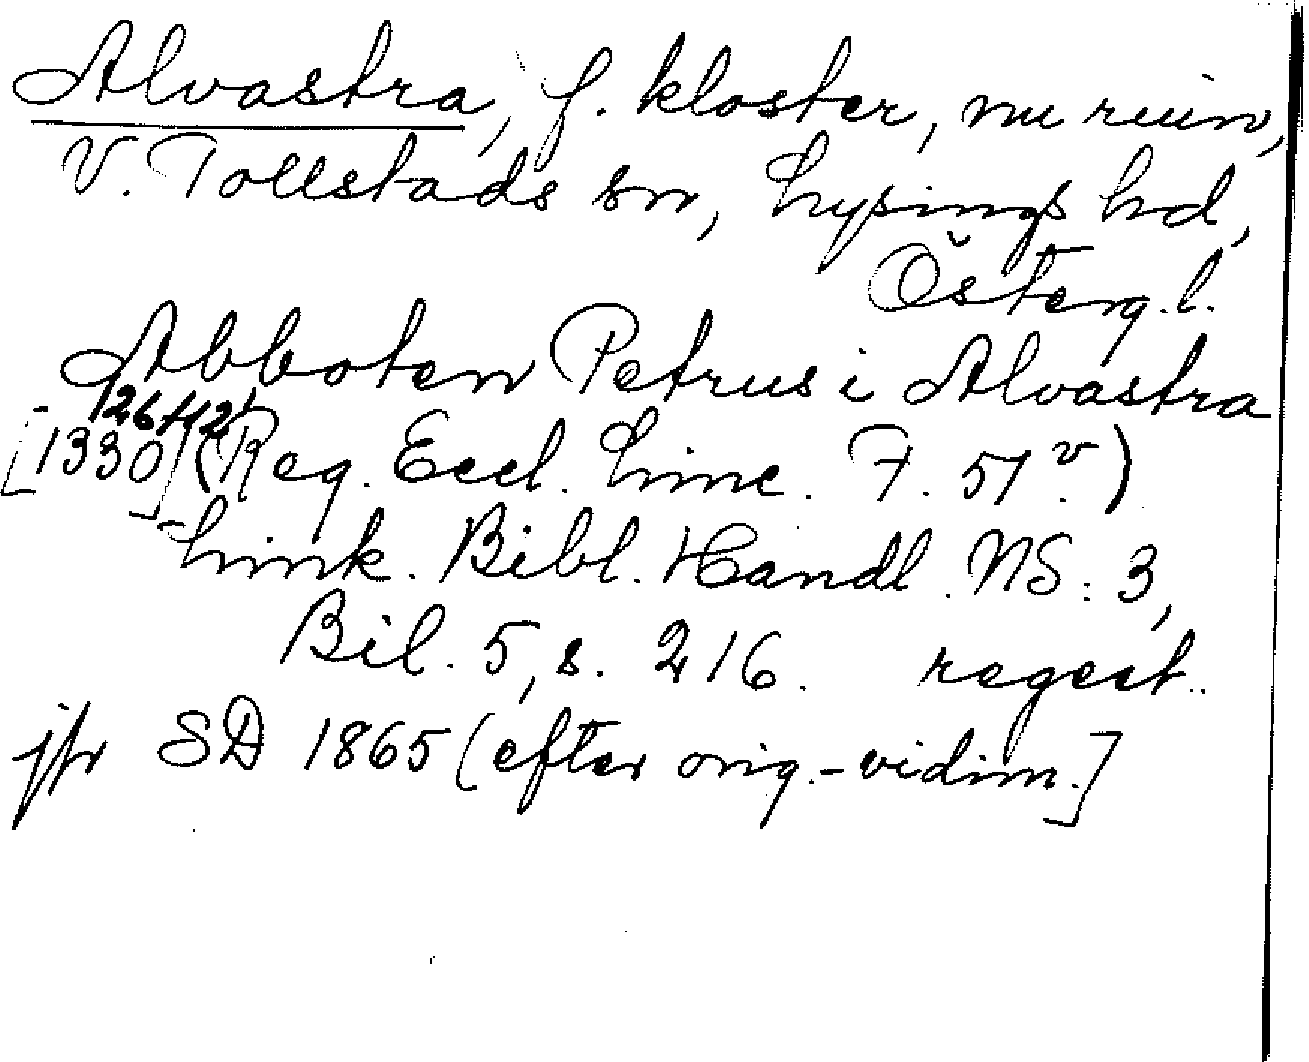 Alvastra, f. kloster, nu ruin,
V. Tollstads sn, Lysings hd,
Österg. l.
Abboten Petrus i Alvastra
[1330] (Reg. Eccl. Linc. F. 51 v.)
Link. Bibl. Handl. NS: 3,
Bil. 5, s. 216. regest.
jfr SD 1865 (efter orig.-vidim.]